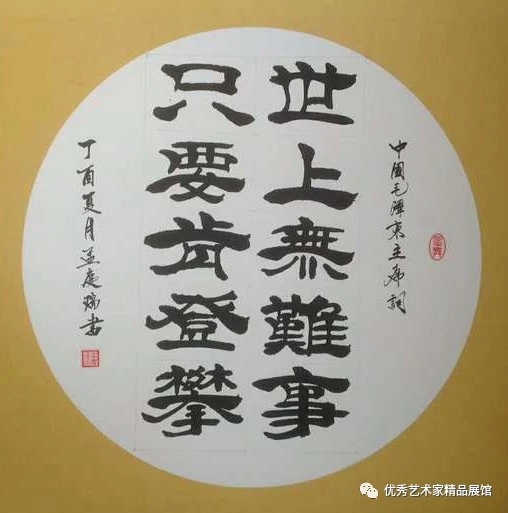 中國毛澤東主席詞
世上無難事
只要肯登攀
丁酉夏月孟慶瑞書
优秀艺术家精品展馆